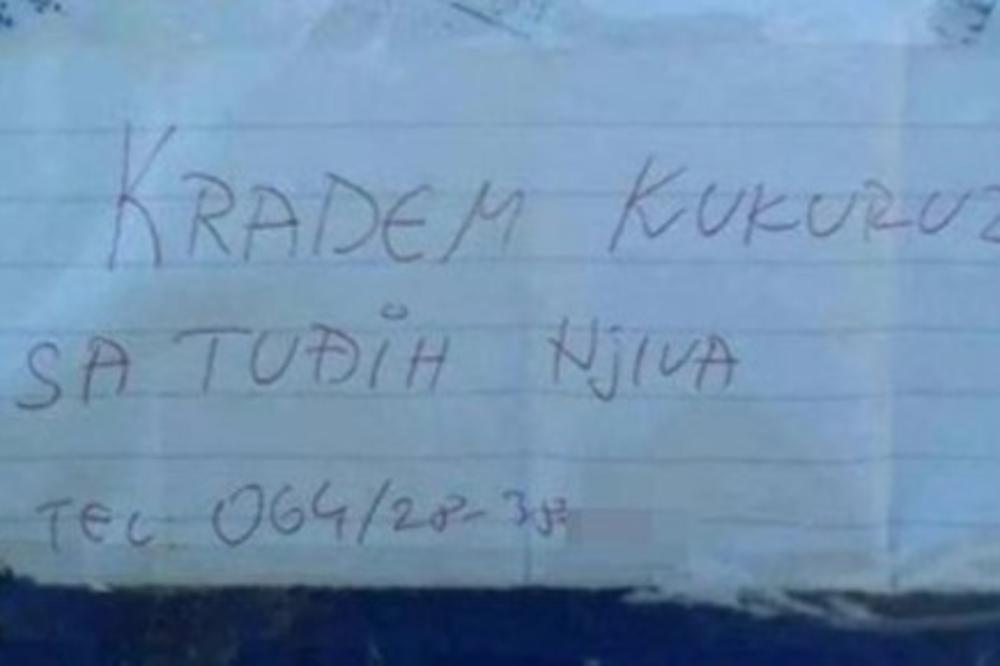 KRADEM KUKURUZ
SA TUĐIH NjIVA
TEL 064/28-38